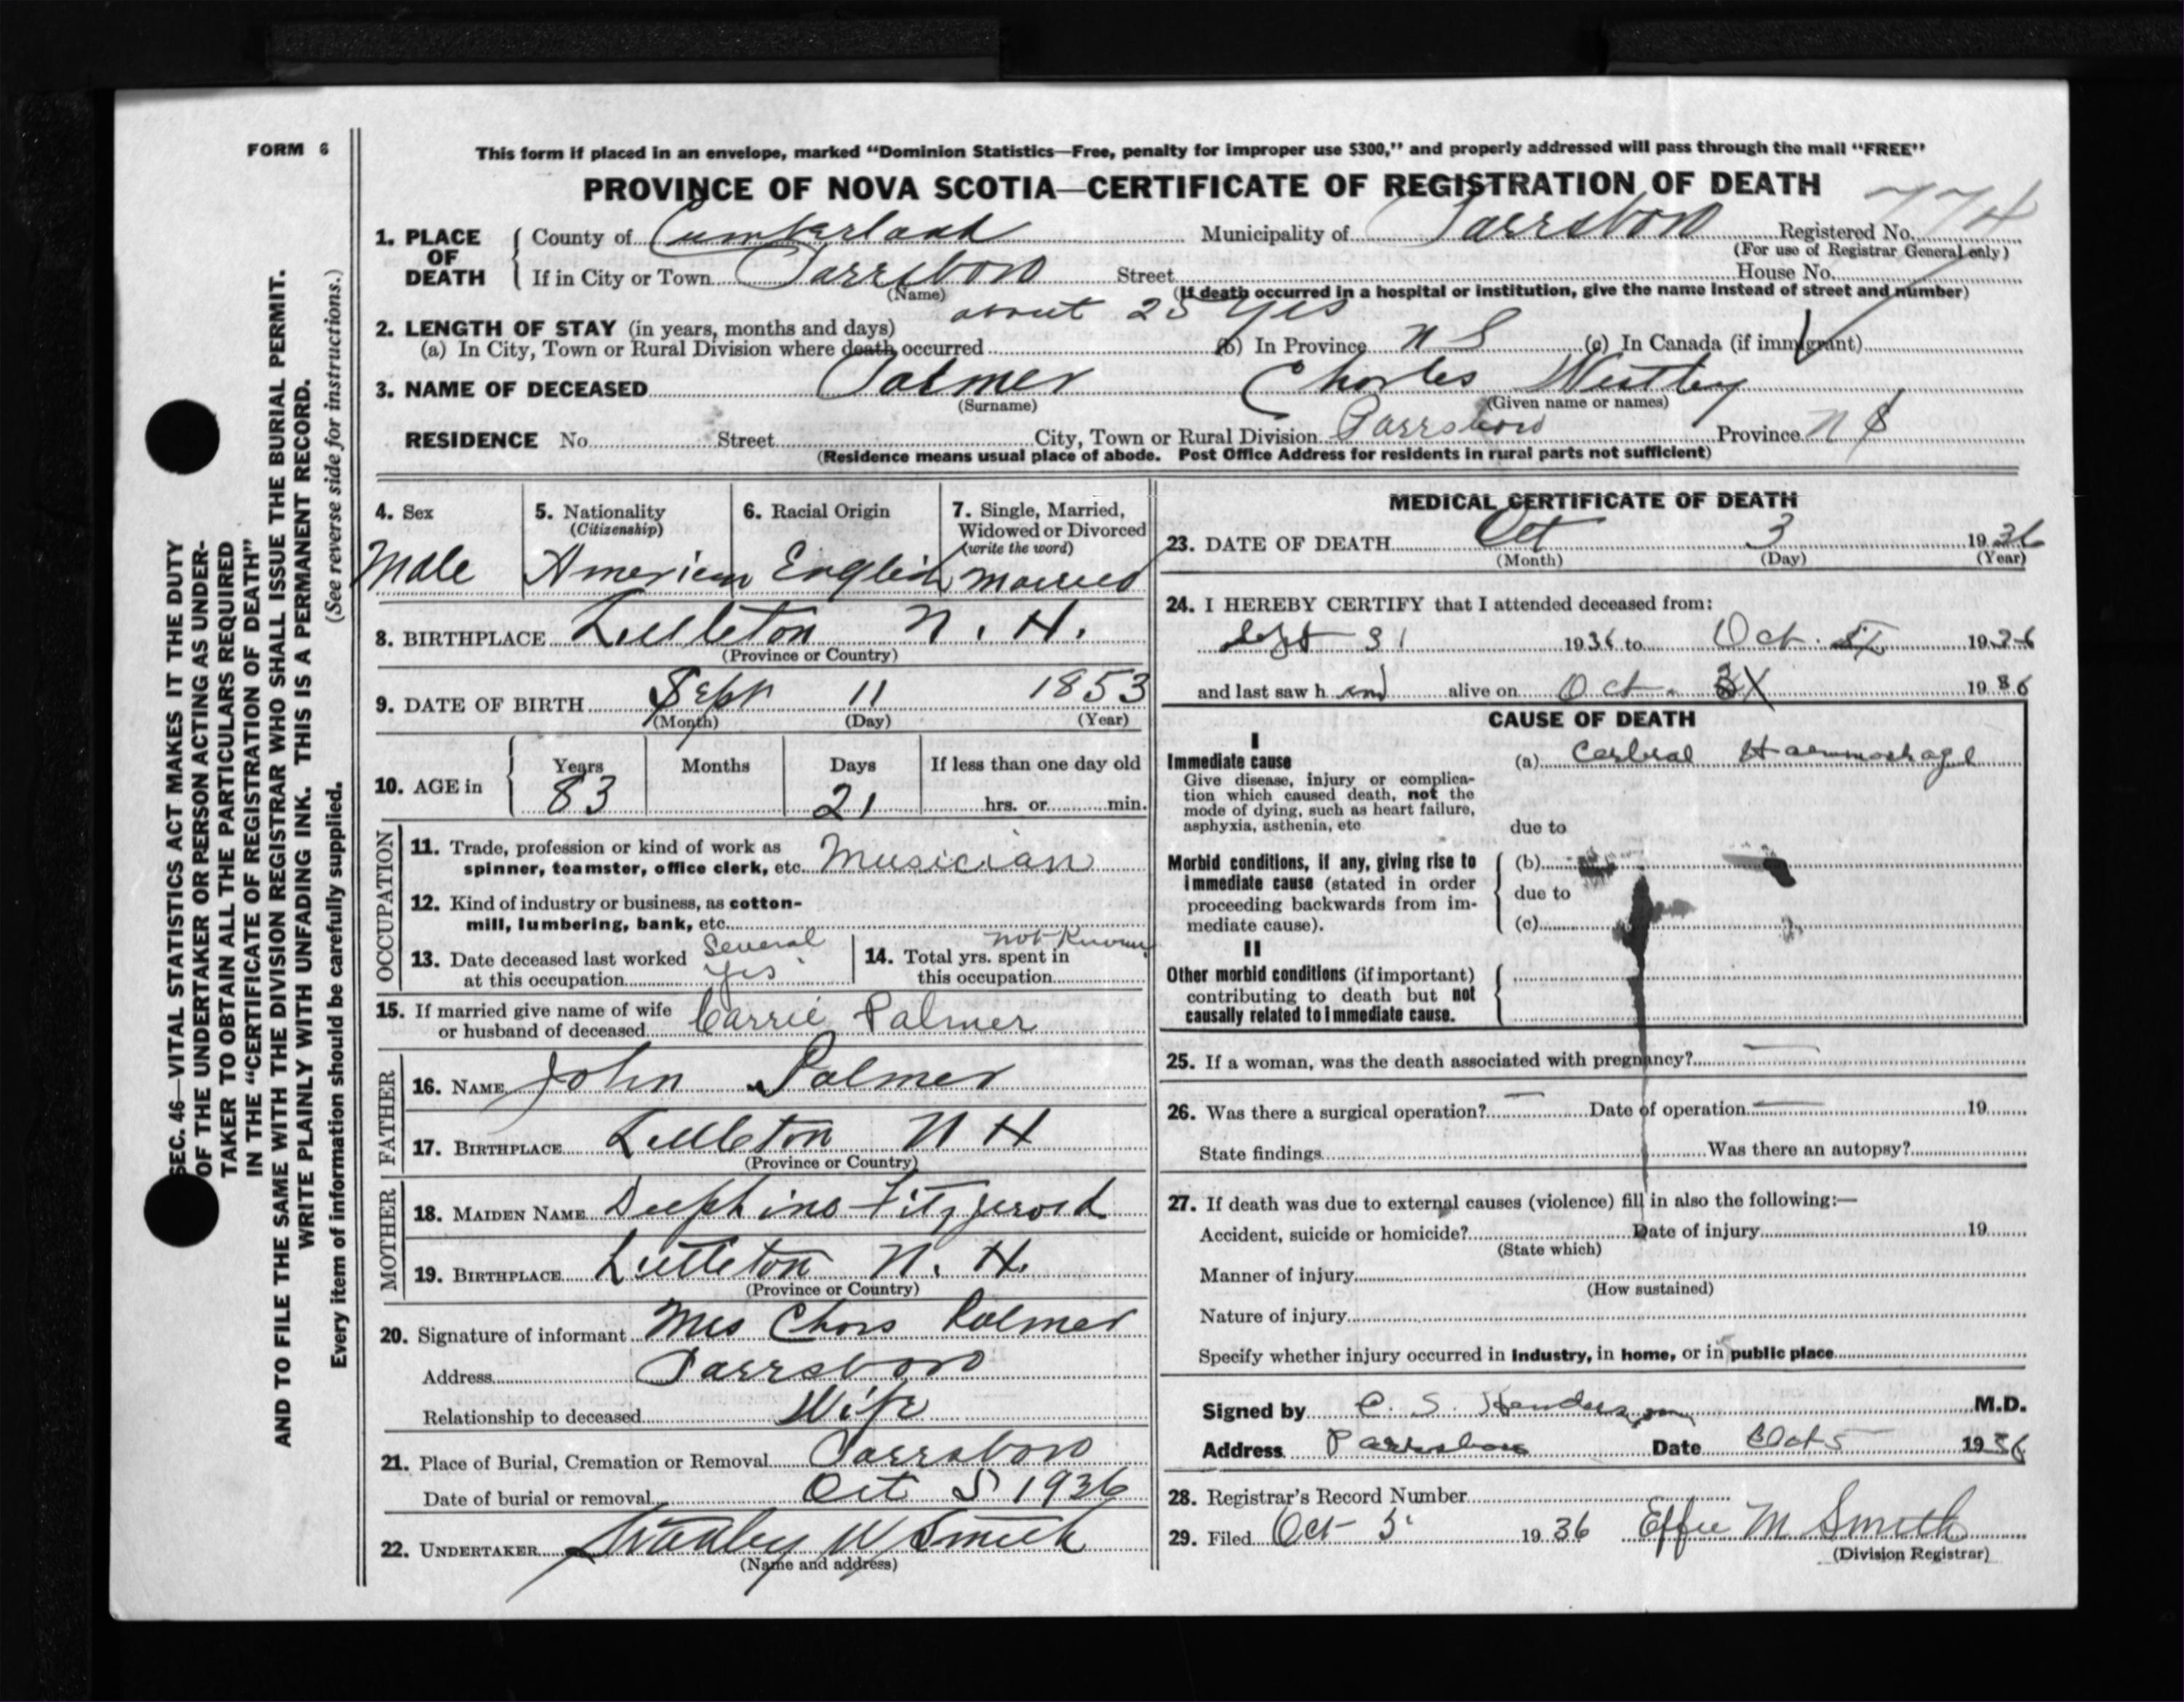 FORM 6
This form if placed in an envelope, marked “Dominion Statistics—Free, penalty for improper use $300,” and properly addressed will pass through the mail “FREE”
PROVINCE OF NOVA SCOTIA—CERTIFICATE OF REGISTRATION OF DEATH
774
1. PLACE OF DEATH { County of Cumberland Municipality of Parrsboro Registered No.
(For use of Registrar General only)
If in City or Town Parrsboro Street House No.
(Name) (If death occurred in a hospital or institution, give the name instead of street and number)
2. LENGTH OF STAY (in years, months and days) about 25 yrs
(a) In City, Town or Rural Division where death occurred (b) In Province N S (c) In Canada (if immigrant)
3. NAME OF DECEASED Palmer Charles Westley
(Surname) (Given name or names)
RESIDENCE No. Street City, Town or Rural Division Parrsboro Province N S
(Residence means usual place of abode. Post Office Address for residents in rural parts not sufficient)
4. Sex
Male
5. Nationality
(Citizenship)
American
6. Racial Origin
English
7. Single, Married,
Widowed or Divorced
(write the word)
Married
8. BIRTHPLACE Littleton N. H.
(Province or Country)
9. DATE OF BIRTH Sept 11 1853
(Month) (Day) (Year)
10. AGE in { Years Months Days If less than one day old
83 21 hrs. or min.
OCCUPATION
11. Trade, profession or kind of work as
spinner, teamster, office clerk, etc. Musician
12. Kind of industry or business, as cotton-
mill, lumbering, bank, etc.
13. Date deceased last worked Several
at this occupation yrs
14. Total yrs. spent in not Known
this occupation
15. If married give name of wife
or husband of deceased Carrie Palmer
FATHER
16. NAME John Palmer
17. BIRTHPLACE Littleton N H
(Province or Country)
MOTHER
18. MAIDEN NAME Delphine Fitzgerald
19. BIRTHPLACE Littleton N. H.
(Province or Country)
20. Signature of informant Mrs Chas Palmer
Address Parrsboro
Relationship to deceased Wife
21. Place of Burial, Cremation or Removal Parrsboro
Date of burial or removal Oct 5 1936
22. UNDERTAKER Stanley W Smith
(Name and address)
MEDICAL CERTIFICATE OF DEATH
23. DATE OF DEATH Oct 3 1936
(Month) (Day) (Year)
24. I HEREBY CERTIFY that I attended deceased from:
Sept 31 1936 to Oct. 1936
and last saw h im alive on Oct. 1936
CAUSE OF DEATH
I
Immediate cause (a) Cerbral Haemmorhage
Give disease, injury or complica-
tion which caused death, not the
mode of dying, such as heart failure,
asphyxia, asthenia, etc due to
Morbid conditions, if any, giving rise to (b)
immediate cause (stated in order due to
proceeding backwards from im- (c)
mediate cause).
II
Other morbid conditions (if important)
contributing to death but not
causally related to immediate cause.
25. If a woman, was the death associated with pregnancy? —
26. Was there a surgical operation? — Date of operation — 19
State findings Was there an autopsy?
27. If death was due to external causes (violence) fill in also the following:—
Accident, suicide or homicide? Date of injury 19
(State which)
Manner of injury
(How sustained)
Nature of injury
Specify whether injury occurred in industry, in home, or in public place
Signed by C. S. Henderson M.D.
Address Parrsboro Date Oct 5 1936
28. Registrar's Record Number
29. Filed Oct 5 1936 Effie M Smith
(Division Registrar)
SEC. 46—VITAL STATISTICS ACT MAKES IT THE DUTY
OF THE UNDERTAKER OR PERSON ACTING AS UNDER-
TAKER TO OBTAIN ALL THE PARTICULARS REQUIRED
IN THE “CERTIFICATE OF REGISTRATION OF DEATH”
AND TO FILE THE SAME WITH THE DIVISION REGISTRAR WHO SHALL ISSUE THE BURIAL PERMIT.
WRITE PLAINLY WITH UNFADING INK. THIS IS A PERMANENT RECORD.
Every item of information should be carefully supplied. (See reverse side for instructions.)